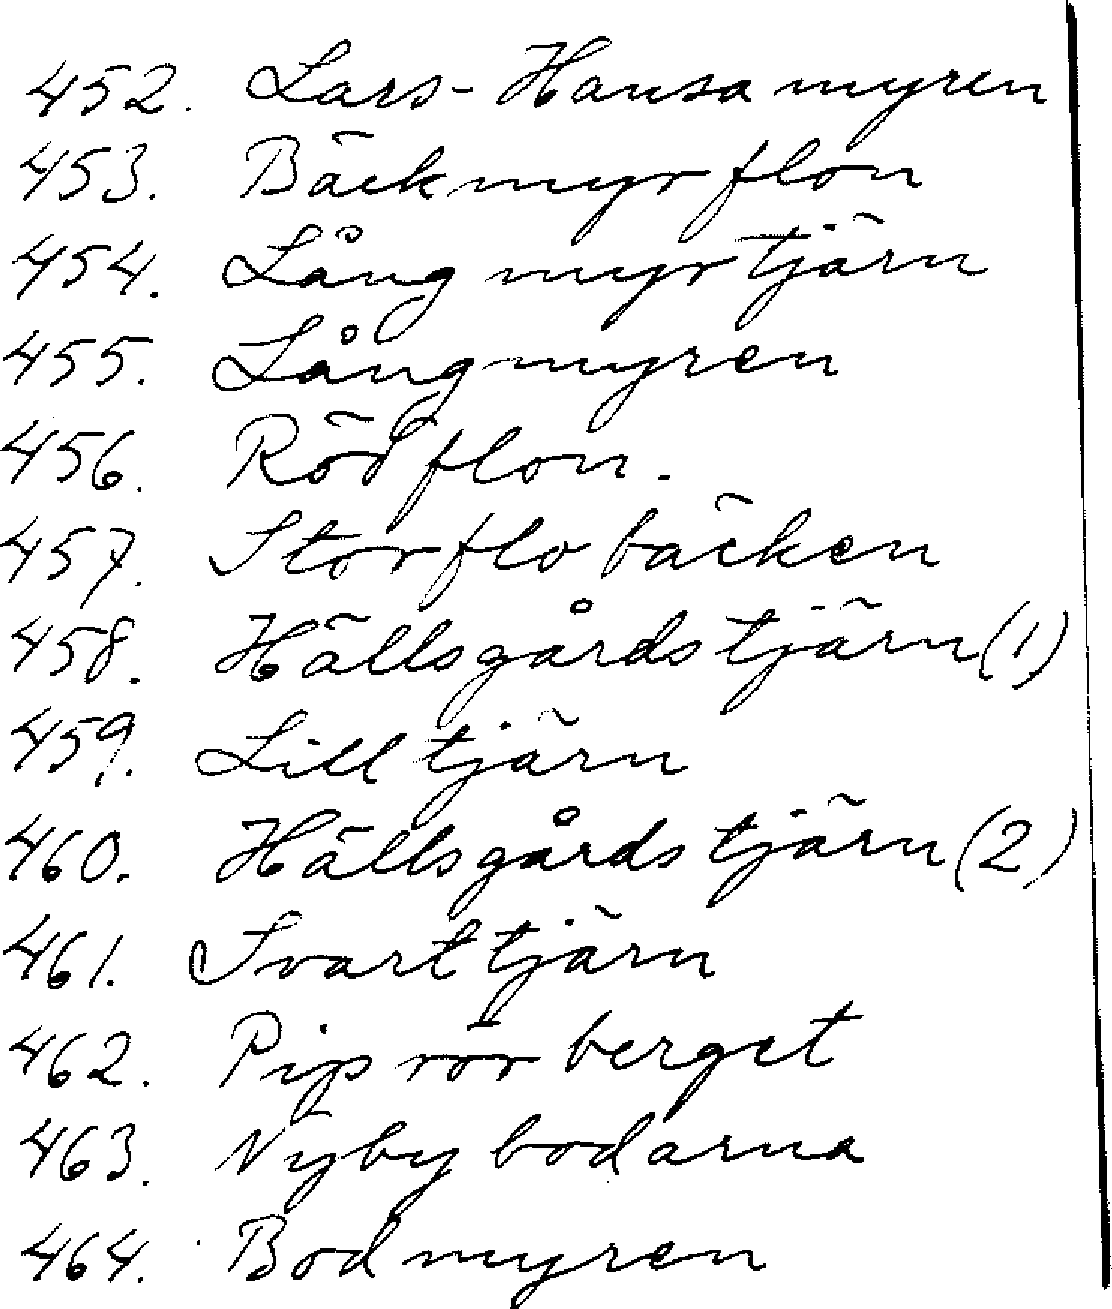 452. Lars-Hansamyren
453. Bäckmyrflon
454. Långmyrtjärn
455. Långmyren
456. Rödflon.
457. Storflobäcken
458. Hällsgårdstjärn (1)
459. Lilltjärn
460. Hällsgårdstjärn (2)
461. Svarttjärn
462. Piprörberget
463. Nybybodarna
464. Bodmyren